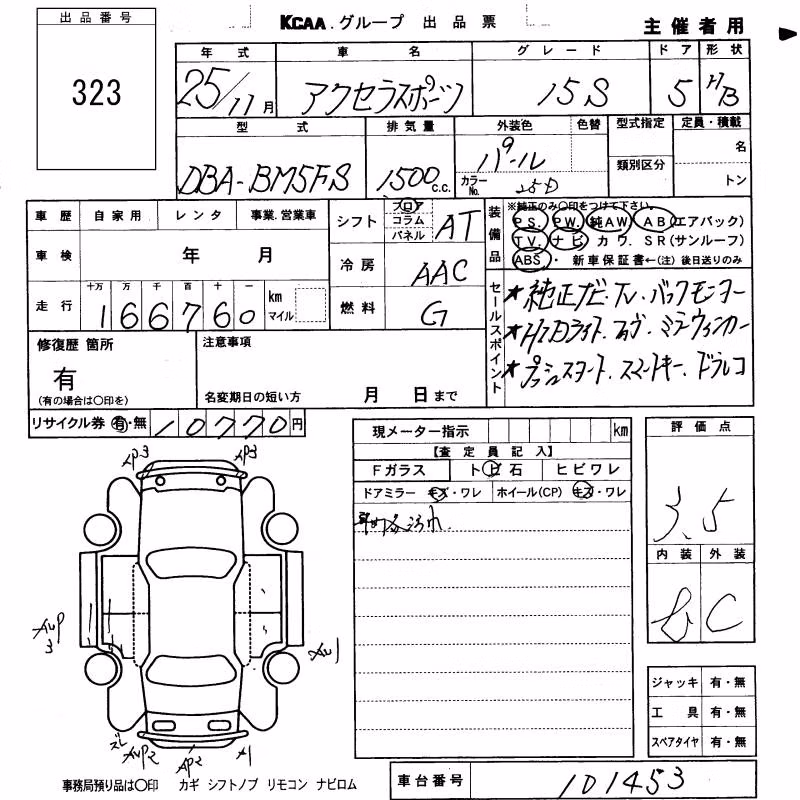 出品番号
323
KCAA.グループ 出品票
主催者用
年式 車名 グレード ドア 形状
25/11月 アクセラスポーツ 15S 5 H/B
型式 排気量 外装色 色替 型式指定 定員・積載
DBA-BM5FS 1500c.c. パール 名
カラーNo. 25D 類別区分 トン
車歴 自家用 レンタ 事業.営業車
シフト フロア コラム パネル AT
装備品
※純正のみ〇印をつけて下さい。
P S. P W. 純AW A B(エアバック)
T V. ナビ カワ. S R(サンルーフ)
ABS・ 新車保証書←(注)後日送りのみ
車検 年 月
冷房 AAC
走行 十万 万 千 百 十 一
166760 km マイル
燃料 G
セールスポイント
★純正ナビ.TV.バックモニター
★HIDライト.
ミラーウィンカー
★プッシュスタート.スマートキー.ドラレコ
修復歴 箇所
有
(有の場合は〇印を)
注意事項
名変期日の短い方 月 日まで
リサイクル券 有・無 10770円
現メーター指示 km
【査定員記入】
Fガラス トビ石 ヒビワレ
ドアミラー キズ・ワレ ホイール(CP) キズ・ワレ
評価点
3.5
内装 外装
B C
AP3 AP3
3
ズレ
AUP2 AP2
ジャッキ 有・無
工具 有・無
スペアタイヤ 有・無
事務局預り品は〇印 カギ シフトノブ リモコン ナビロム
車台番号 101453